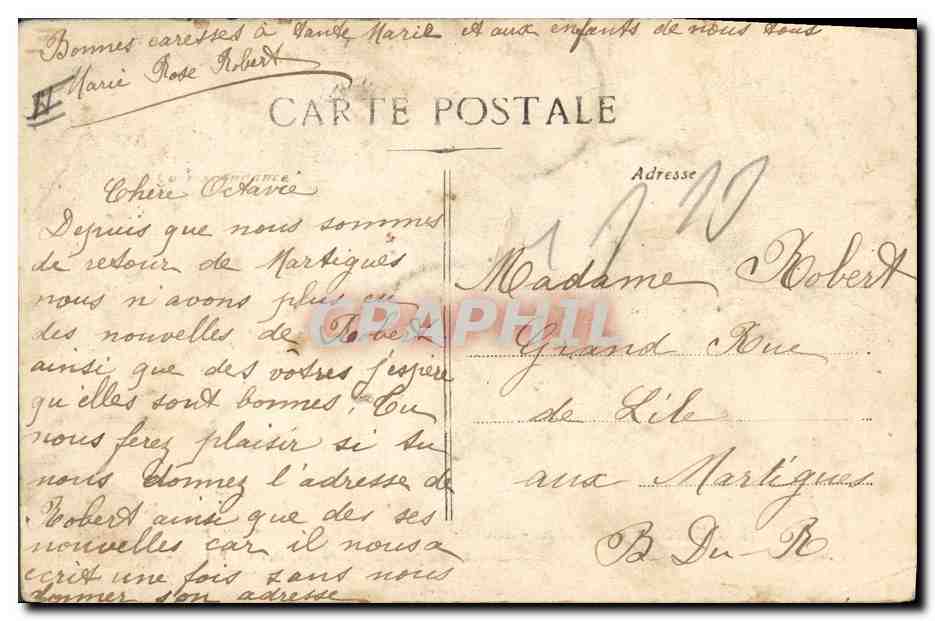 Bonnes caresses à tante Marie et aux enfants de nous tous
Marie Rose Robert
CARTE POSTALE
Correspondance
Adresse
Chère Octavie
Depuis que nous sommes
de retour de Martigues
nous n'avons plus eu
des nouvelles de Robert
ainsi que des votres j'espère
qu'elles sont bonnes. Tu
nous ferez plaisir si tu
nous donnez l'adresse de
Robert ainsi que des ses
nouvelles car il nous a
ecrit une fois sans nous
donner son adresse
Madame Robert
Grand Rue
de L'ile
aux Martigues
B Du-R
CPAPHIL